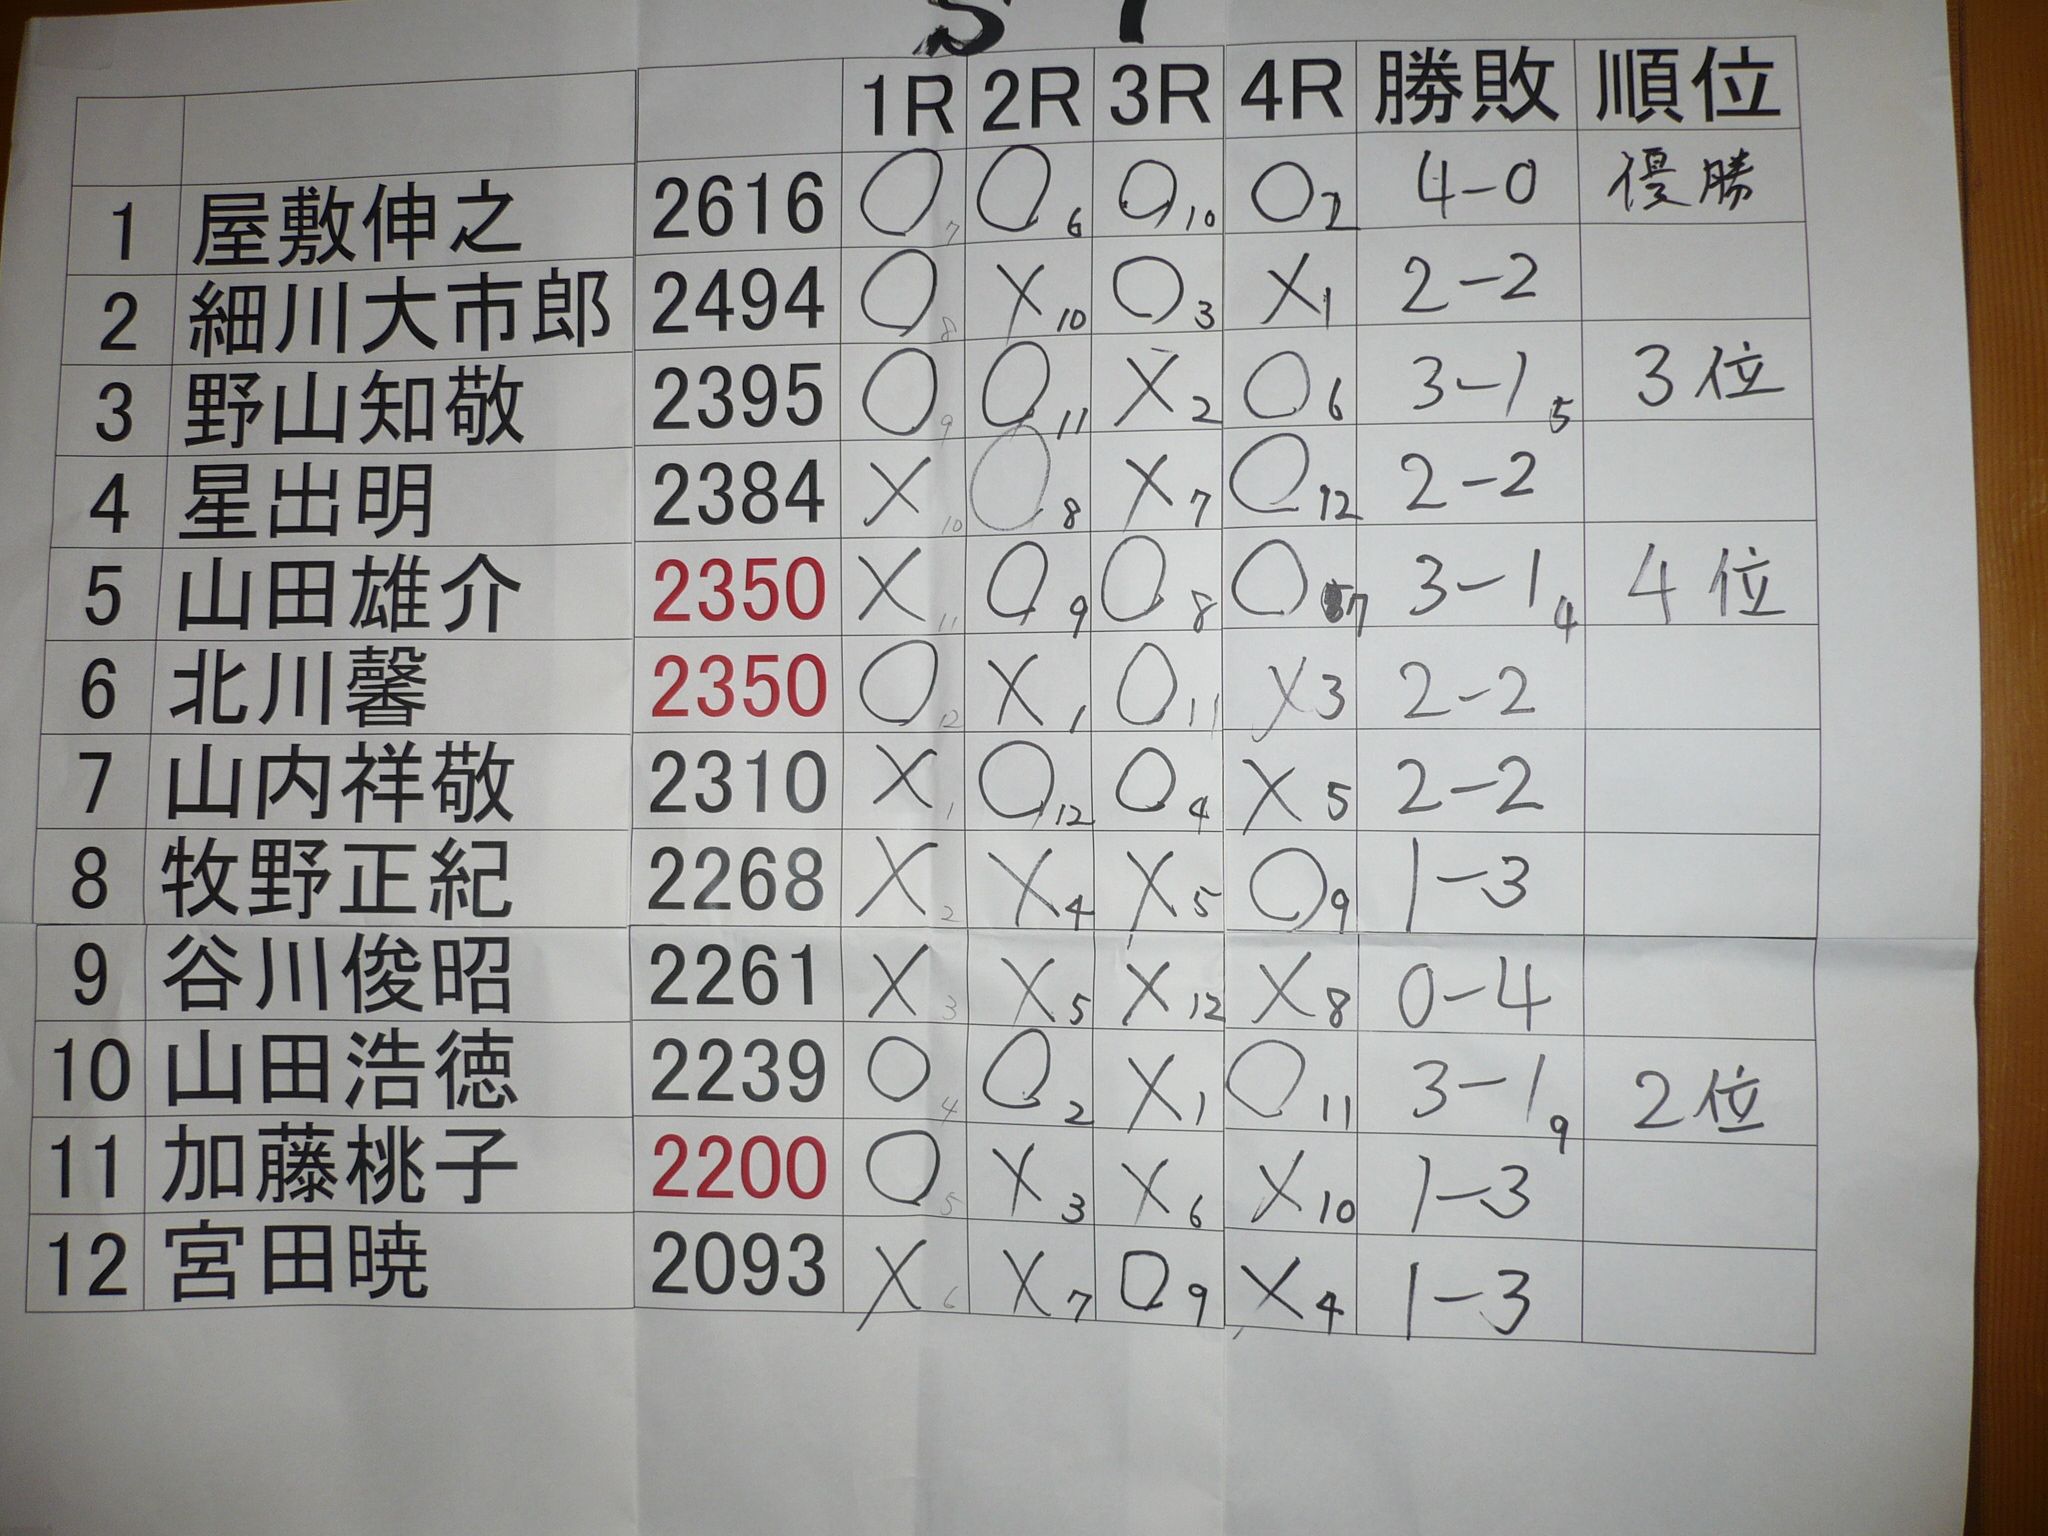 1R 2R 3R 4R 勝敗 順位
1 屋敷伸之 2616 ○7 ○6 ○10 ○2 4-0 優勝
2 細川大市郎 2494 ○8 ×10 ○3 ×1 2-2
3 野山知敬 2395 ○9 ○11 ×2 ○6 3-1 5 3位
4 星出明 2384 ×10 ○8 ×7 ○12 2-2
5 山田雄介 2350 ×11 ○9 ○8 ○7 3-1 4 4位
6 北川馨 2350 ○12 ×1 ○11 ×3 2-2
7 山内祥敬 2310 ×1 ○12 ○4 ×5 2-2
8 牧野正紀 2268 ×2 ×4 ×5 ○9 1-3
9 谷川俊昭 2261 ×3 ×5 ×12 ×8 0-4
10 山田浩徳 2239 ○4 ○2 ×1 ○11 3-1 9 2位
11 加藤桃子 2200 ○5 ×3 ×6 ×10 1-3
12 宮田暁 2093 ×6 ×7 ○9 ×4 1-3